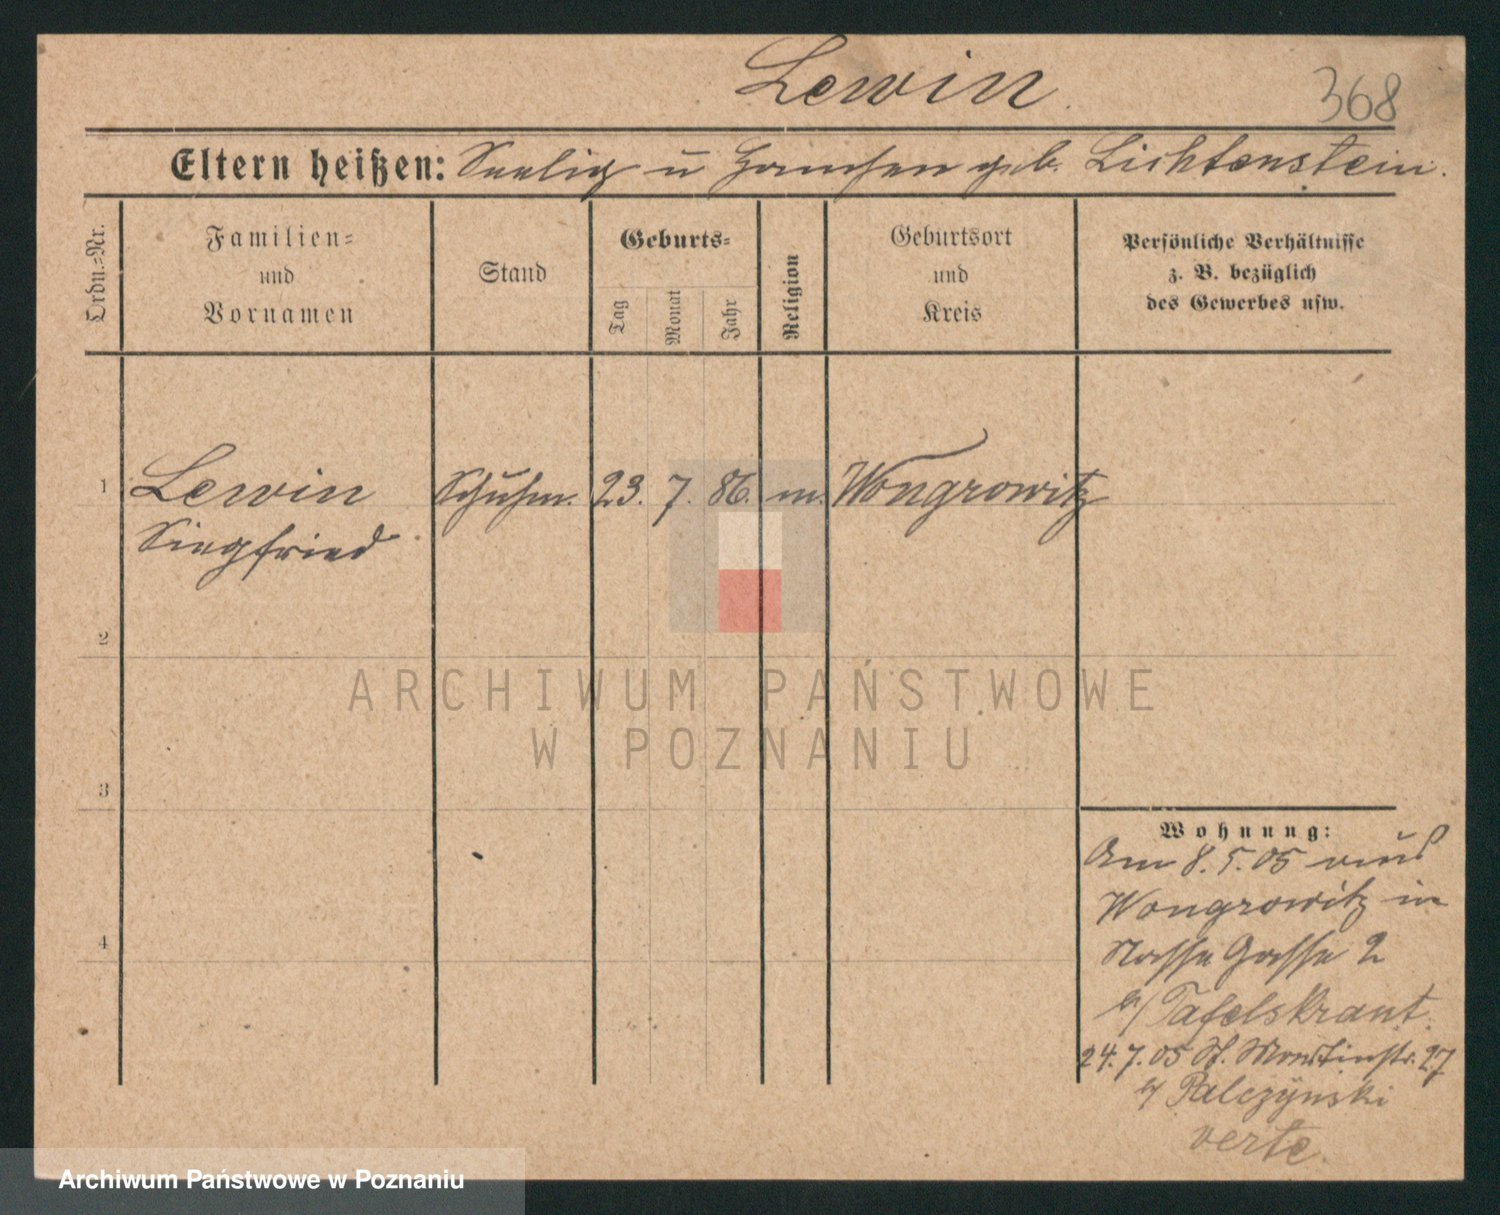 Lewin.
368
Eltern heißen: Seelig u geb. Lichtenstein.
Ordn.-Nr.
Familien-
und
Vornamen
Stand
Geburts-
Tag
Monat
Jahr
Religion
Geburtsort
und
Kreis
Persönliche Verhältnisse
z. B. bezüglich
des Gewerbes usw.
1 Lewin Schuhm. 23. 7. 86. m. Wongrowitz
Siegfried
2
3
4
Wohnung:
Am 8. 5. 05 aus
Wongrowitz in
Nasse Gasse 2
b/ Tafelskraut.
24. 7. 05 St. Martinstr. 27
b/ Palczynski
verte.
ARCHIWUM PAŃSTWOWE
W POZNANIU
Archiwum Państwowe w Poznaniu